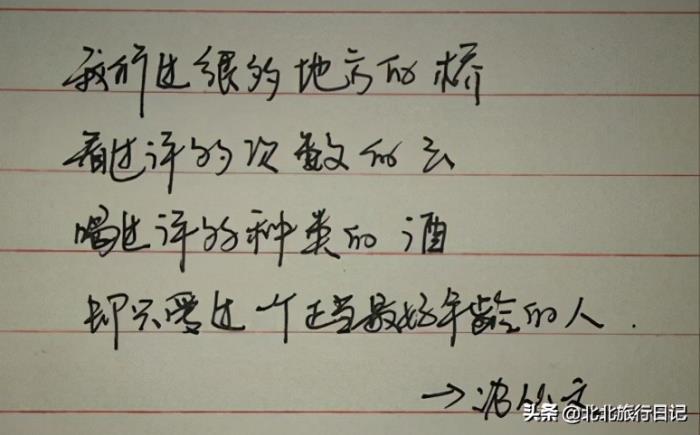 我行过很多地方的桥
看过许多次数的云
喝过许多种类的酒
却只爱过一个正当最好年龄的人.
→沈从文
头条 @北北旅行日记